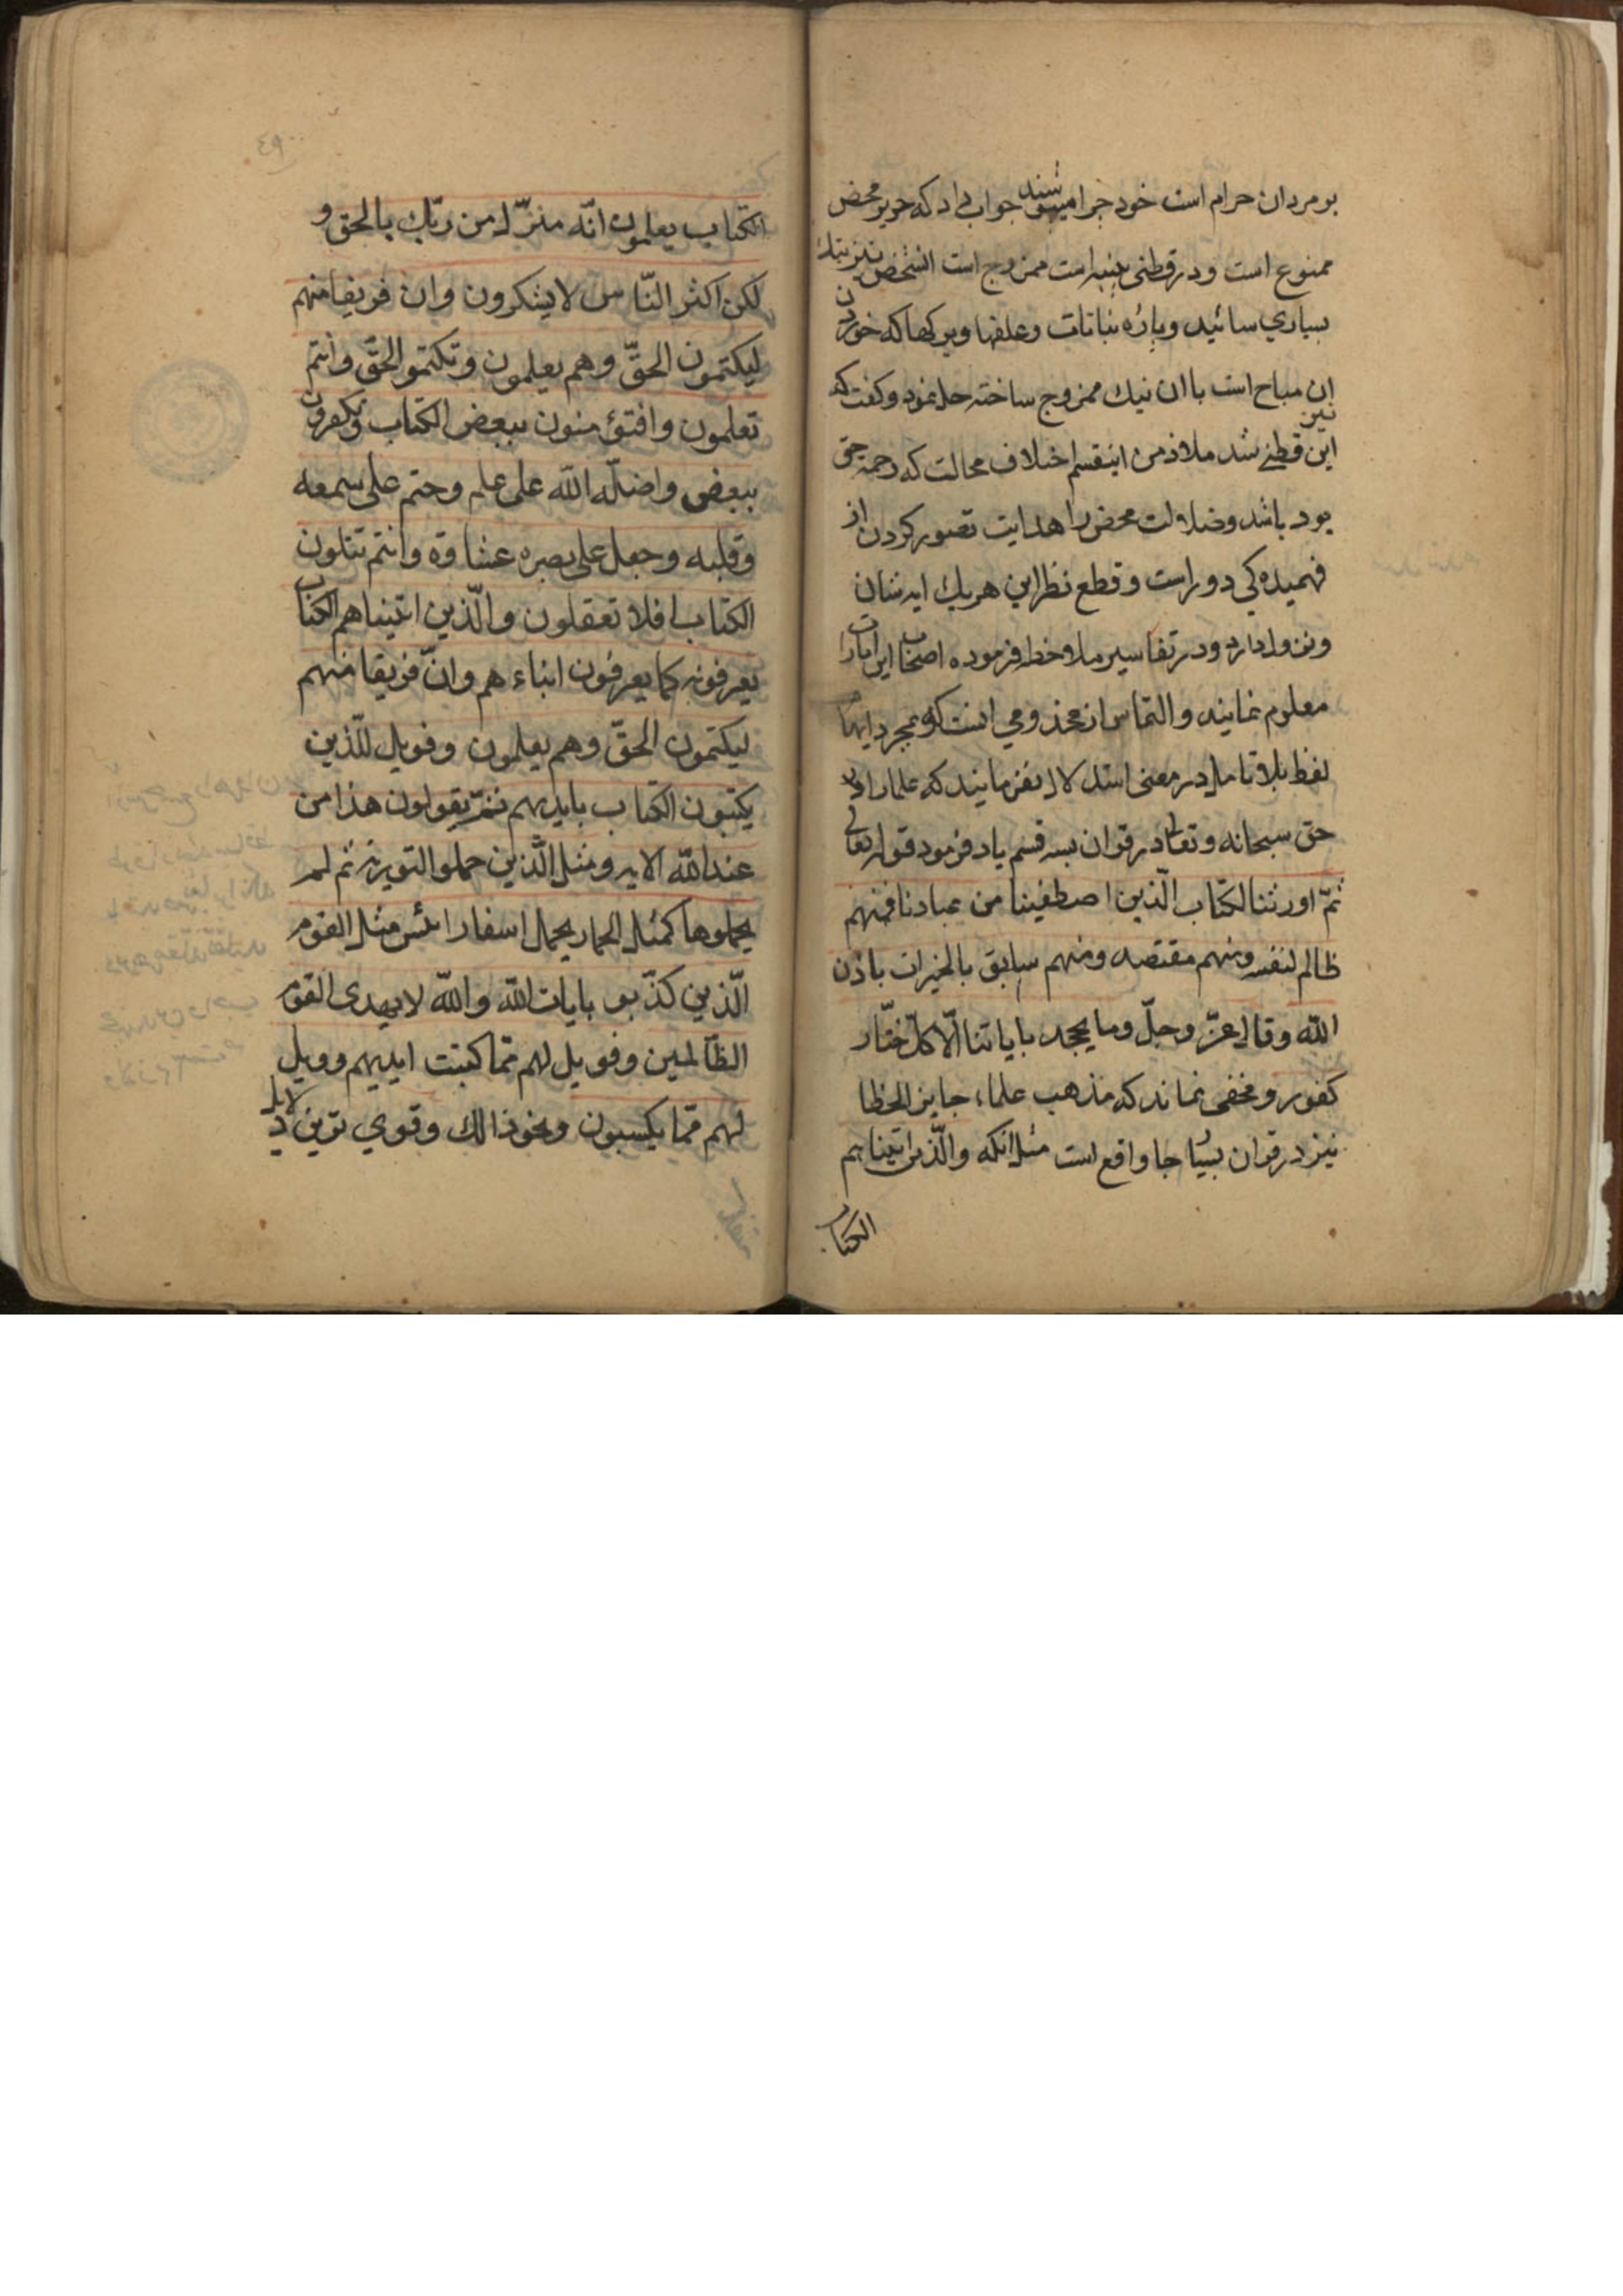 بر مردان حرام است خود چرا میپوشند جواب داد که حریر محض
ممنوع است و در قطنی پنبه است ممزوج است انشخص نیز بتک
بسیاری سائید و پاره نباتات و علفها و برکها که خوردن
ان مباح است با ان نیک ممزوج ساخته حل نمود و کفت که
این نیز قطنی شد ملاذ من اینقسم اختلاف محالت که رحمة حق
بود باشد و ضلالت محض را هدایت تصور کردن از
فهمیده کی دور است و قطع نظر این هر یک ایه شان
و نزول دارد و در تفاسیر ملاحظه فرموده اصحاب این ایات را
معلوم نمایند و التماس از مخذومی انست که بمجرد ایهام
لفظ بلا تامل در معنی استدلال نفرمایند که علما را
حق سبحانه و تعالی در قران بسه قسم یاد فرمود قوله تعالی
ثمّ اورثنا الکتاب الّذین اصطفینا من عبادنا فمنهم
ظالم لنفسه ومنهم مقتصد ومنهم سابق بالخیرات باذن
الله وقال عزّ وجلّ وما یجحد بایاتنا الّا کلّ ختّار
کفور و مخفی نماند که مذهب علماء جایز الخطا
نیز در قران بسیار جا واقع است مثل انکه والّذین اتیناهم
الکتاب
الکتاب یعلمون انّه منزّل من ربّک بالحق و
لکن اکثر النّاس لا یشکرون وان فریقا منهم
لیکتمون الحقّ وهم یعلمون وتکتمو الحقّ وانتم
تعلمون وافتؤمنون ببعض الکتاب وتکفرون
ببعض واضلّه الله علی علم وختم علی سمعه
وقلبه وجعل علی بصره غشاوة وانتم تتلون
الکتاب افلا تعقلون والّذین اتیناهم الکتاب
یعرفونه کما یعرفون ابناءهم وانّ فریقا منهم
لیکتمون الحقّ وهم یعلمون وفویل للّذین
یکتبون الکتاب بایدیهم ثمّ یقولون هذا من
عند الله الایه ومثل الّذین حملو التوریة ثم لم
یحملوها کمثل الحمار یحمل اسفارا بئس مثل القوم
الّذین کذّبو بایات الله والله لا یهدی القوم
الظّالمین وفویل لهم ممّا کتبت ایدیهم وویل
لهم ممّا یکسبون ونحو ذالک وقوی ترین دلایل